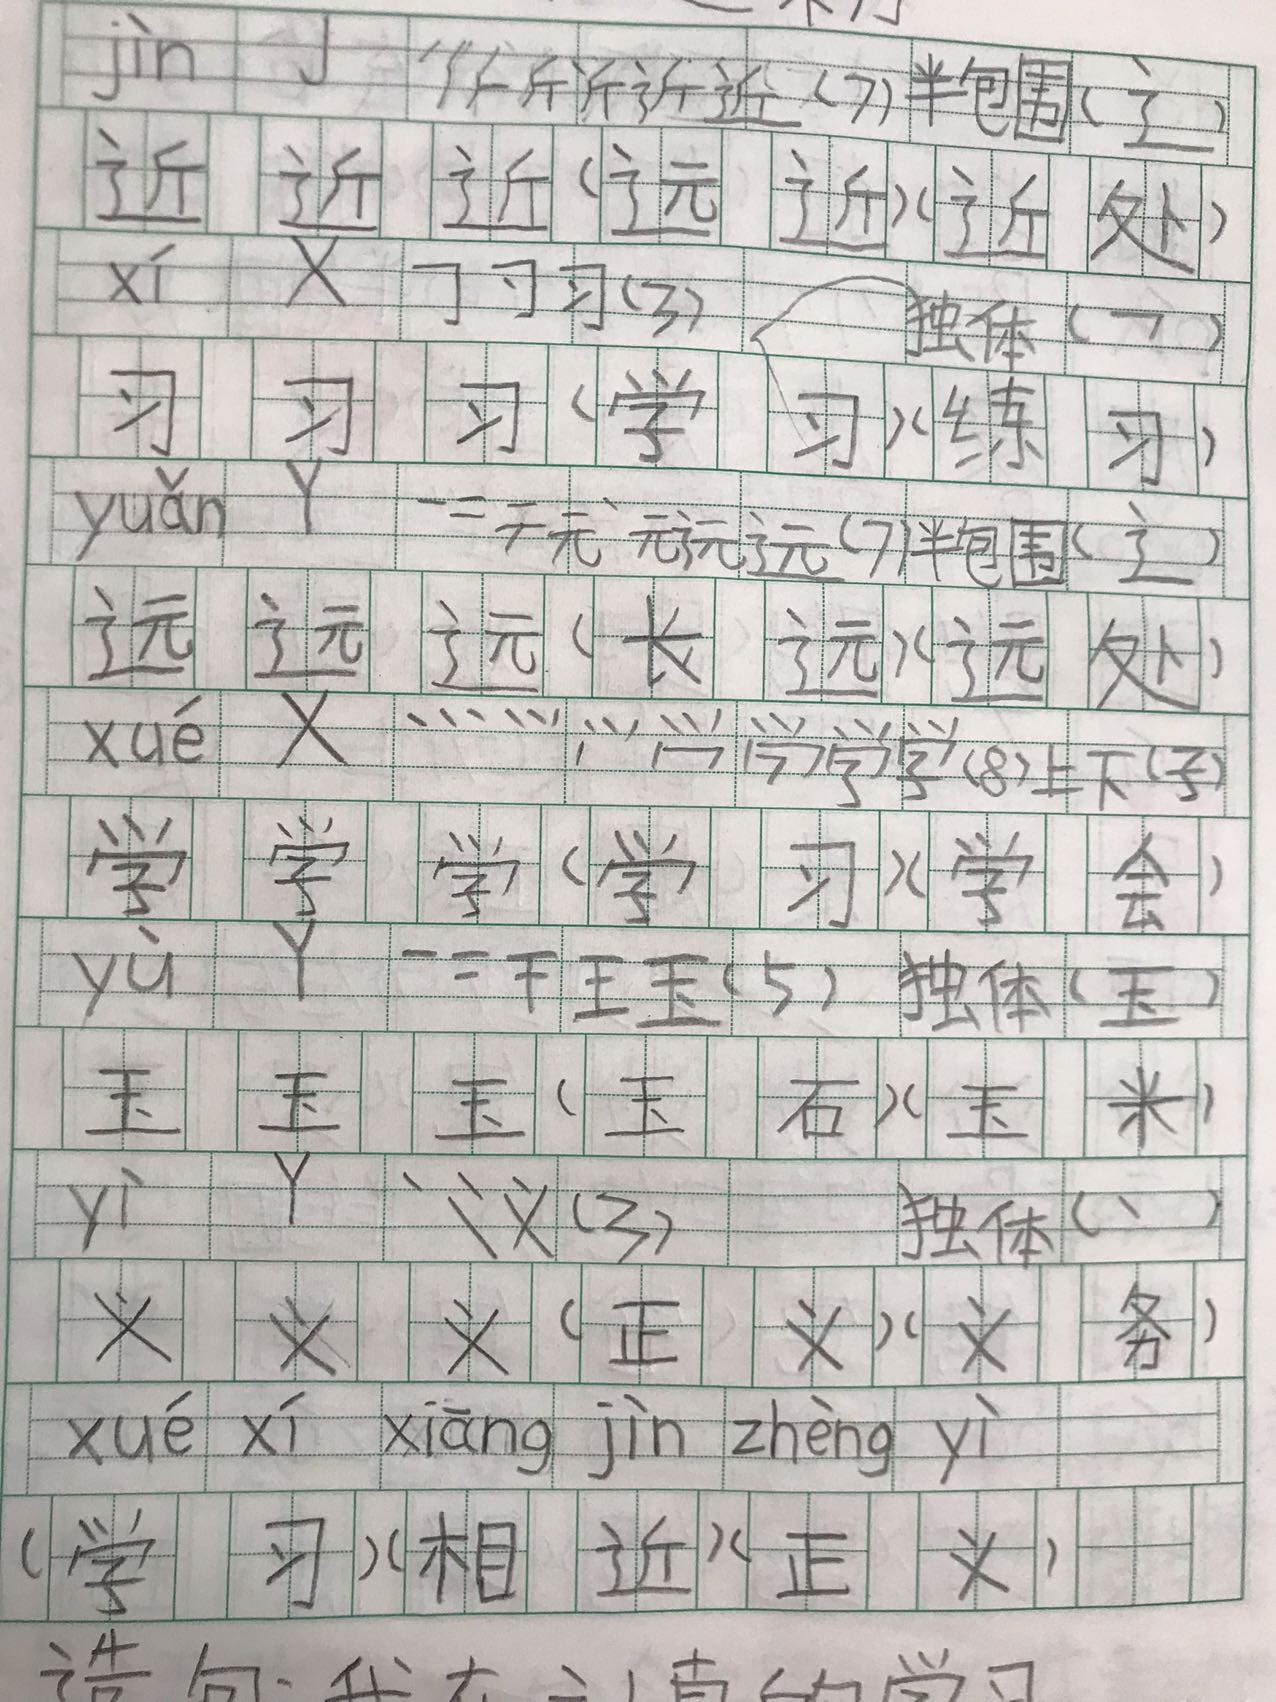 jìn J ノ 厂 斤 斤 䜣 近 近 (7) 半包围 (辶)
近 近 近 (远 近) (近 处)
xí X 丁 习 习 (3) 独体 (乛)
习 习 习 (学 习) (练 习)
yuǎn Y 一 二 テ 元 元 远 远 (7) 半包围 (辶)
远 远 远 (长 远) (远 处)
xué X 学 学 (8) 上下 (子)
学 学 学 (学 习) (学 会)
yù Y 一 二 干 王 玉 (5) 独体 (玉)
玉 玉 玉 (玉 石) (玉 米)
yì Y 丶 义 (3) 独体 (丶)
义 义 义 (正 义) (义 务)
xué xí xiāng jìn zhèng yì
(学 习) (相 近) (正 义)
造句:我在认真的学习